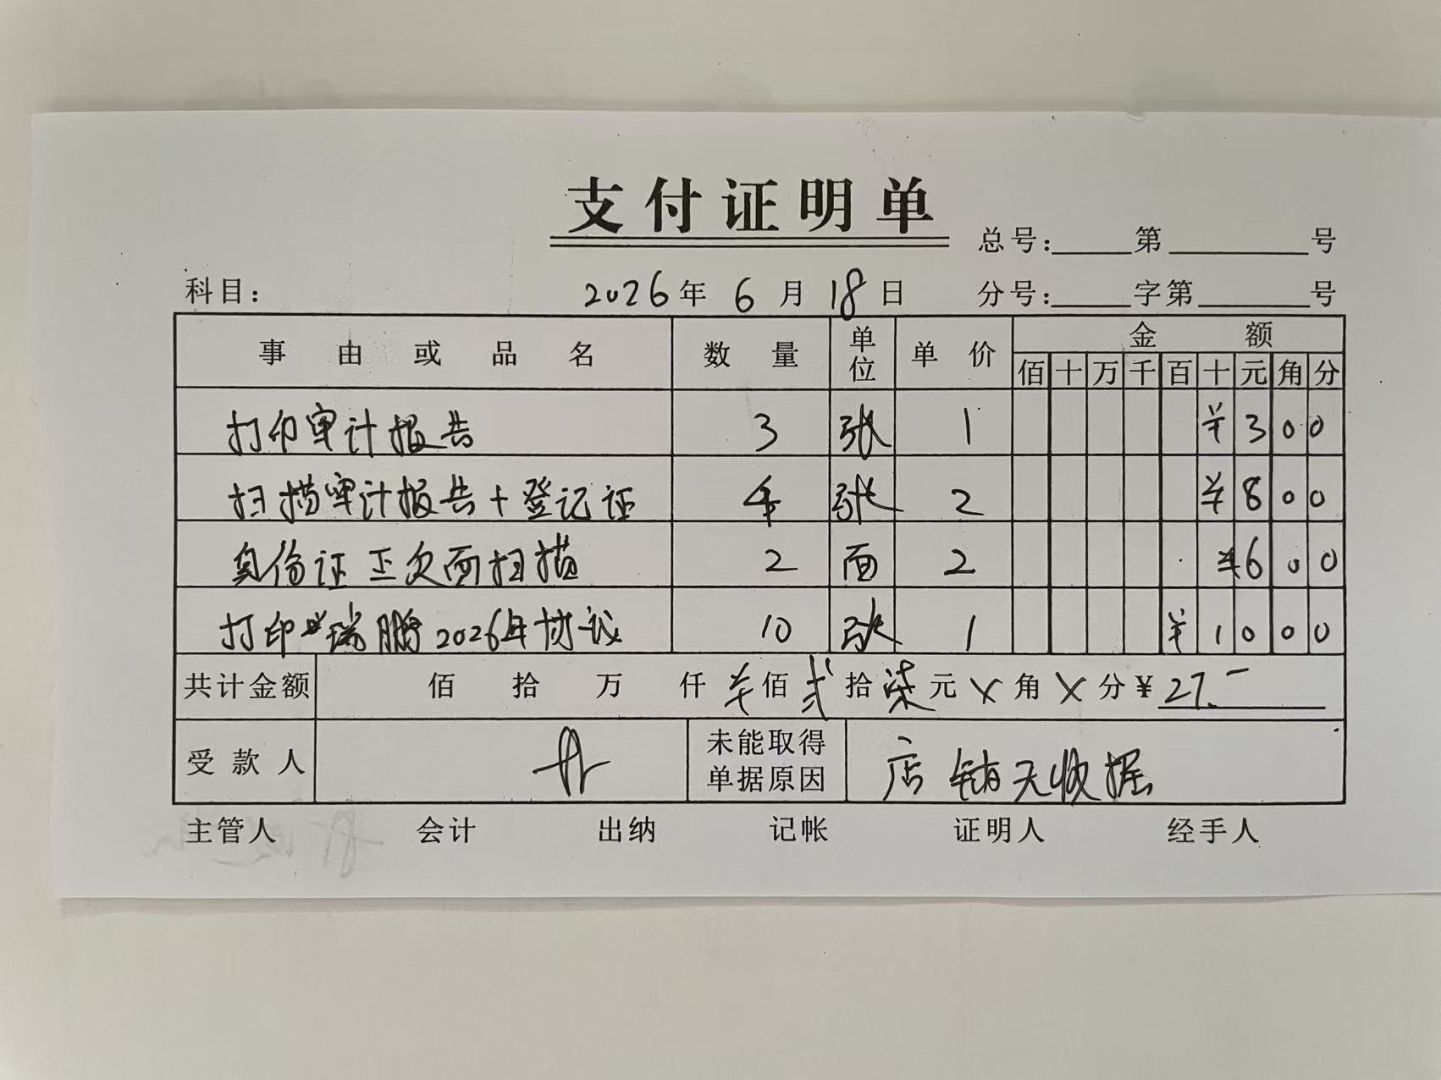 支付证明单
总号： 第 号
科目： 2026年 6月 18日 分号： 字第 号
事由或品名 数量 单位 单价 金额
佰 十 万 千 百 十 元 角 分
打印审计报告 3 张 1 ¥ 3 0 0
扫描审计报告+登记证 4 张 2 ¥ 8 0 0
身份证正反面扫描 2 面 2 ¥ 6 0 0
打印 瑞鹏2026年协议 10 张 1 ¥ 1 0 0 0
共计金额 佰 拾 万 仟 佰 弍 拾 柒 元 X 角 X 分 ¥ 27.-
受款人 未能取得单据原因 店销无收据
主管人 会计 出纳 记帐 证明人 经手人